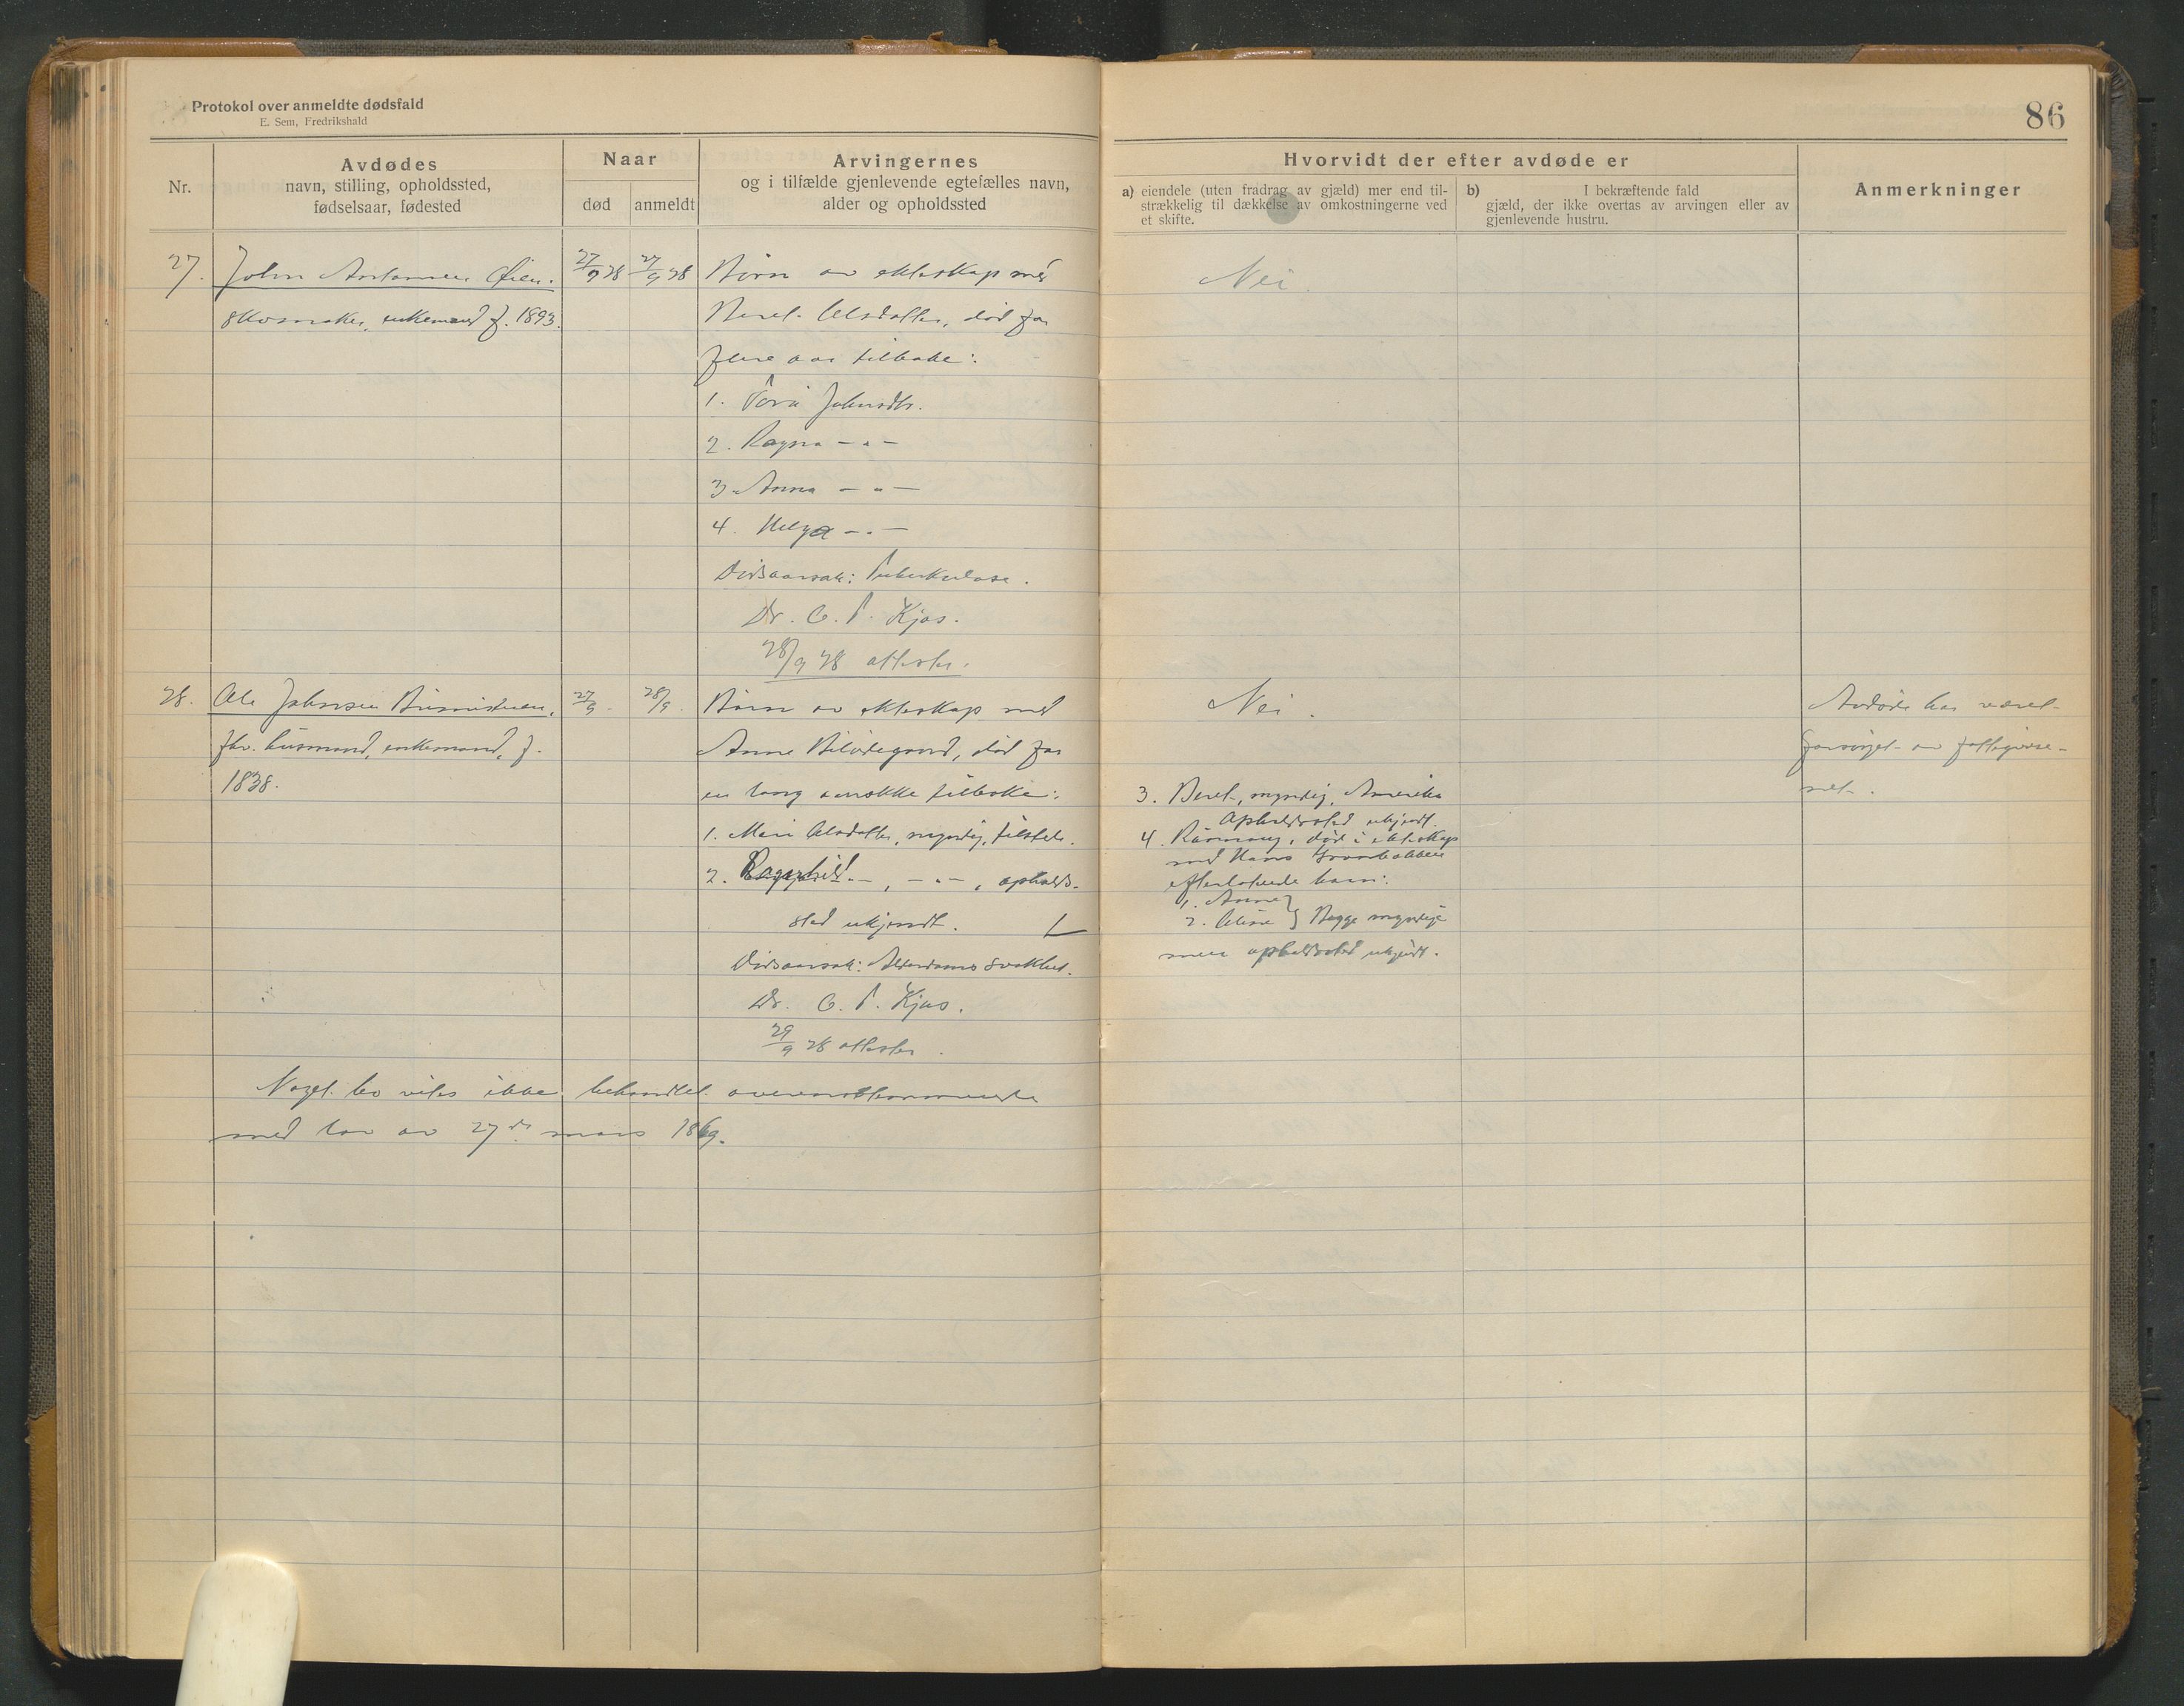 Protokol over anmeldte dødsfald
E. Sem, Fredrikshald
86
Nr.
Avdødes
navn, stilling, opholdssted,
fødselsaar, fødested
Naar
død
anmeldt
Arvingernes
og i tilfælde gjenlevende egtefælles navn,
alder og opholdssted
Hvorvidt der efter avdøde er
a) eiendele (uten fradrag av gjæld) mer end til-
strækkelig til dækkelse av omkostningerne ved
et skifte.
b) I bekræftende fald
gjæld, der ikke overtas av arvingen eller av
gjenlevende hustru.
Anmerkninger
27. John Antonsen Øien.
skomaker, enkemand f. 1893.
27/9 28
27/9 28
Børn av ekteskap med
Beret Olsdatter, død for
flere aar tilbake:
1. Tora Johnsdtr.
2. Ragna -"-
3. Anna -"-
4. Helga -"-
Dødsaarsak: Tuberkulose.
Dr. C. T. Kjos.
28/9 28 attester.
Nei.
28. Ole Johnsen
fhv. husmand, enkemand, f.
1838.
27/9.
28/9.
Børn av ekteskap med
Anne, død for
en lang aarrekke tilbake:
1. Mari Olsdatter, myndig, tilstede.
2. Ragnhild -"-, -"-, opholds-
sted ukjendt.
Dødsaarsak: Alderdomssvakhet.
Dr. C. T. Kjos.
29/9 28 attester.
Nei.
3. Beret, myndig, Amerika
Opholdssted ukjendt.
4. død i ekteskap
med Hans
efterlatende barn:
1. Anne
2. Oline } Begge myndige
men opholdssted ukjendt.
Avdøde har været
forsørget av fattigvæse-
net.
Noget bo vites ikke behandlet overensstemmende
med lov av 27de mars 1869.